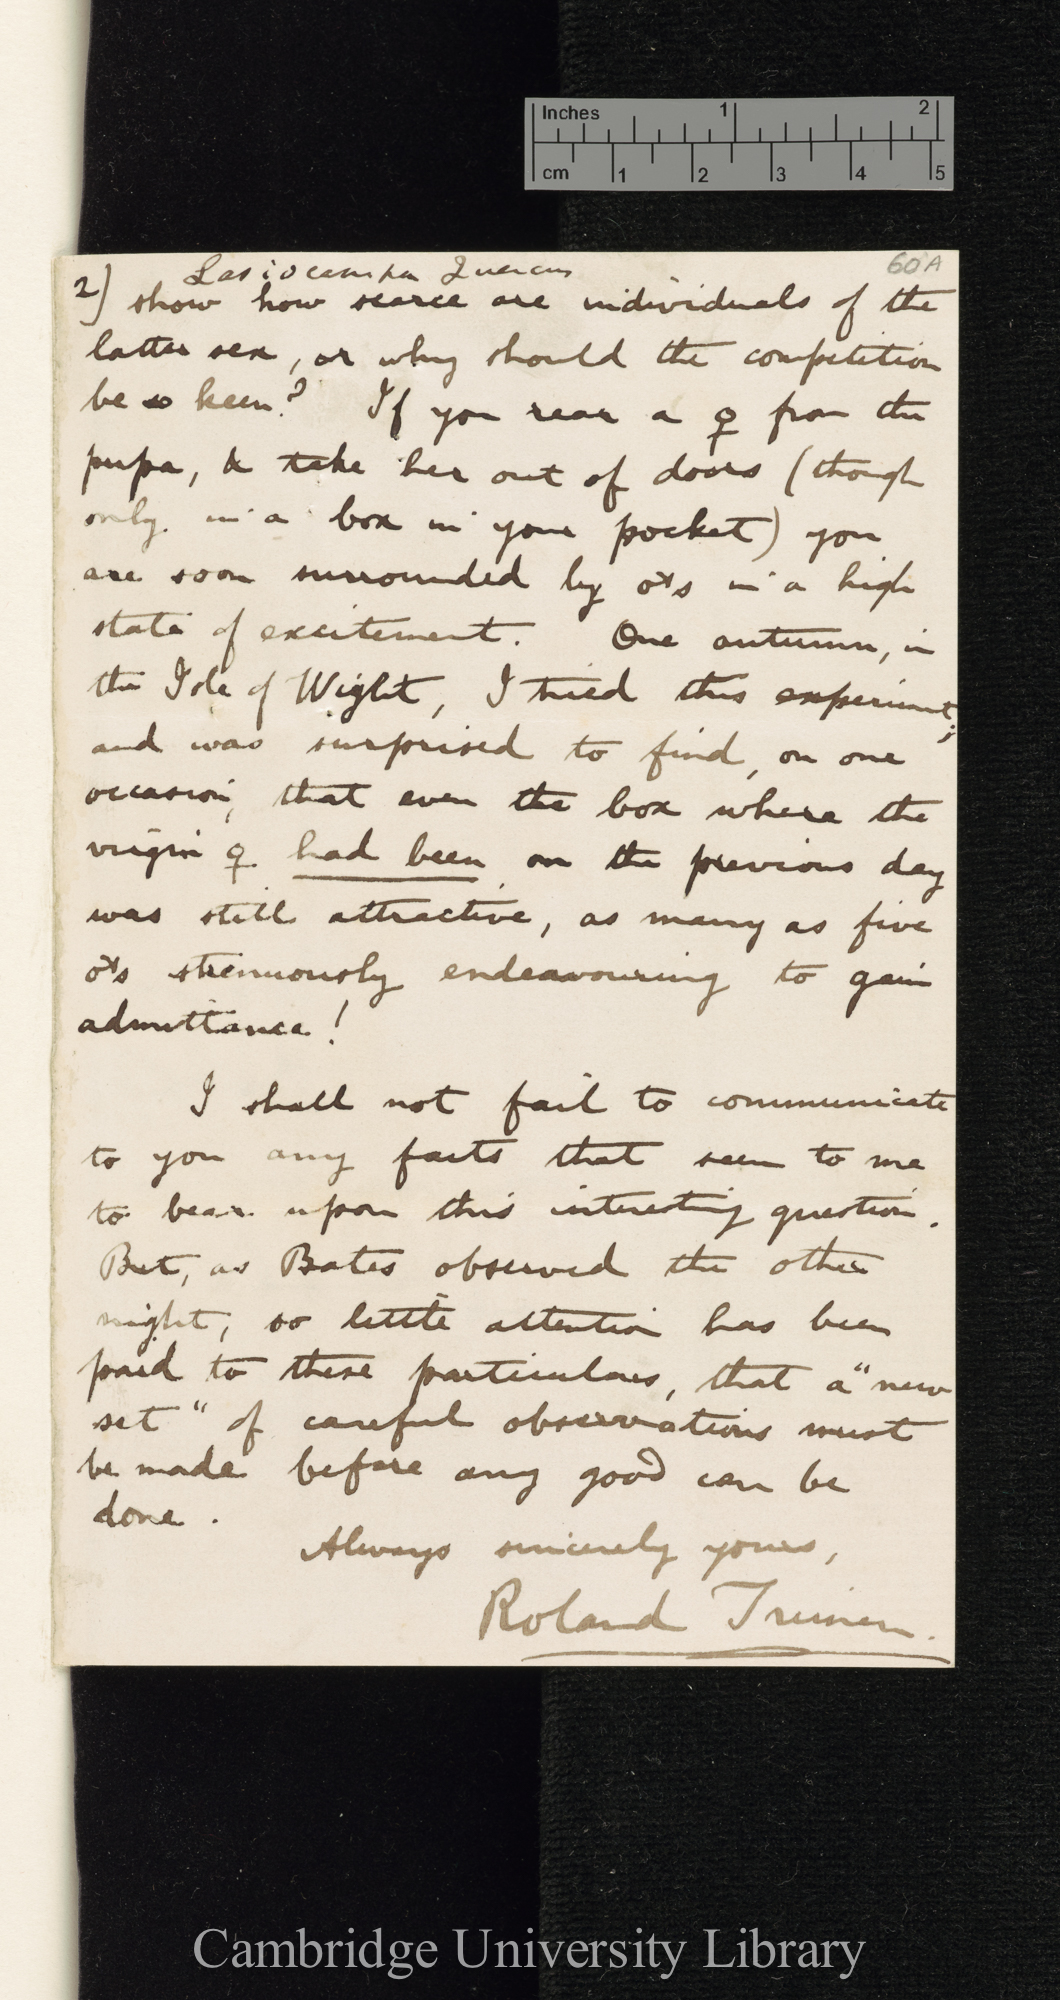 Inches 1 2
cm 1 2 3 4 5
Lasiocampa Quercus
60A
2) show how scarce are individuals of the
latter sex, or why should the competition
be so keen? If you rear a ♀ from the
pupa, & take her out of doors (though
only in a box in your pocket) you
are soon surrounded by ♂s in a high
state of excitement. One autumn, in
the Isle of Wight, I tried this experiment;
and was surprised to find, on one
occasion, that even the box where the
virgin ♀ had been on the previous day
was still attractive, as many as five
♂s strenuously endeavouring to gain
admittance!
I shall not fail to communicate
to you any facts that seem to me
to bear upon this interesting question.
But, as Bates observed the other
night, so little attention has been
paid to these particulars, that a "new
set" of careful observations must
be made before any good can be
done.
Always sincerely yours,
Roland Trimen.
Cambridge University Library